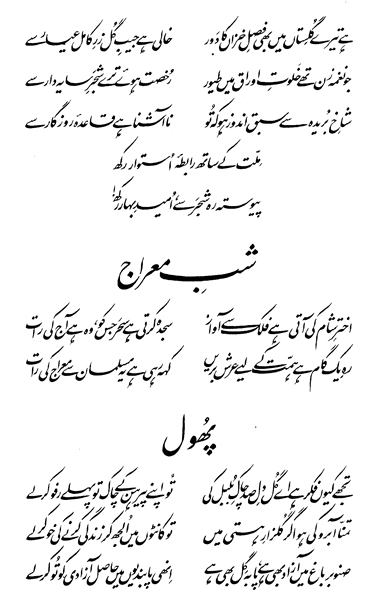 ہے تیرے گلستاں میں بھی فصلِ خزاں کا دَور خالی ہے جیبِ گُل زرِ کامل عیار سے
جو نغمہ زن تھے خلوتِ اوراق میں طیور رُخصت ہوئے ترے شجرِ سایہ دار سے
شاخِ بُریدہ سے سبق اندوز ہو کہ تُو ناآشنا ہے قاعدۂ روزگار سے
مِلّت کے ساتھ رابطۂ اُستوار رکھ
پیوستہ رہ شجر سے، اُمیدِ بہار رکھ!
شبِ معراج
اخترِ شام کی آتی ہے فلک سے آواز سجدہ کرتی ہے سحر جس کو، وہ ہے آج کی رات
رہ یک گام ہے ہمّت کے لیے عرشِ بریں کہہ رہی ہے یہ مسلمان سے معراج کی رات
پھُول
تجھے کیوں فکر ہے اے گُل دلِ صد چاکِ بُلبل کی تُو اپنے پیرہن کے چاک تو پہلے رفو کر لے
تمنّا آبرو کی ہو اگر گلزارِ ہستی میں تو کانٹوں میں اُلجھ کر زندگی کرنے کی خو کر لے
صنوبر باغ میں آزاد بھی ہے، پا بہ گِل بھی ہے انھی پابندیوں میں حاصل آزادی کو تُو کر لے